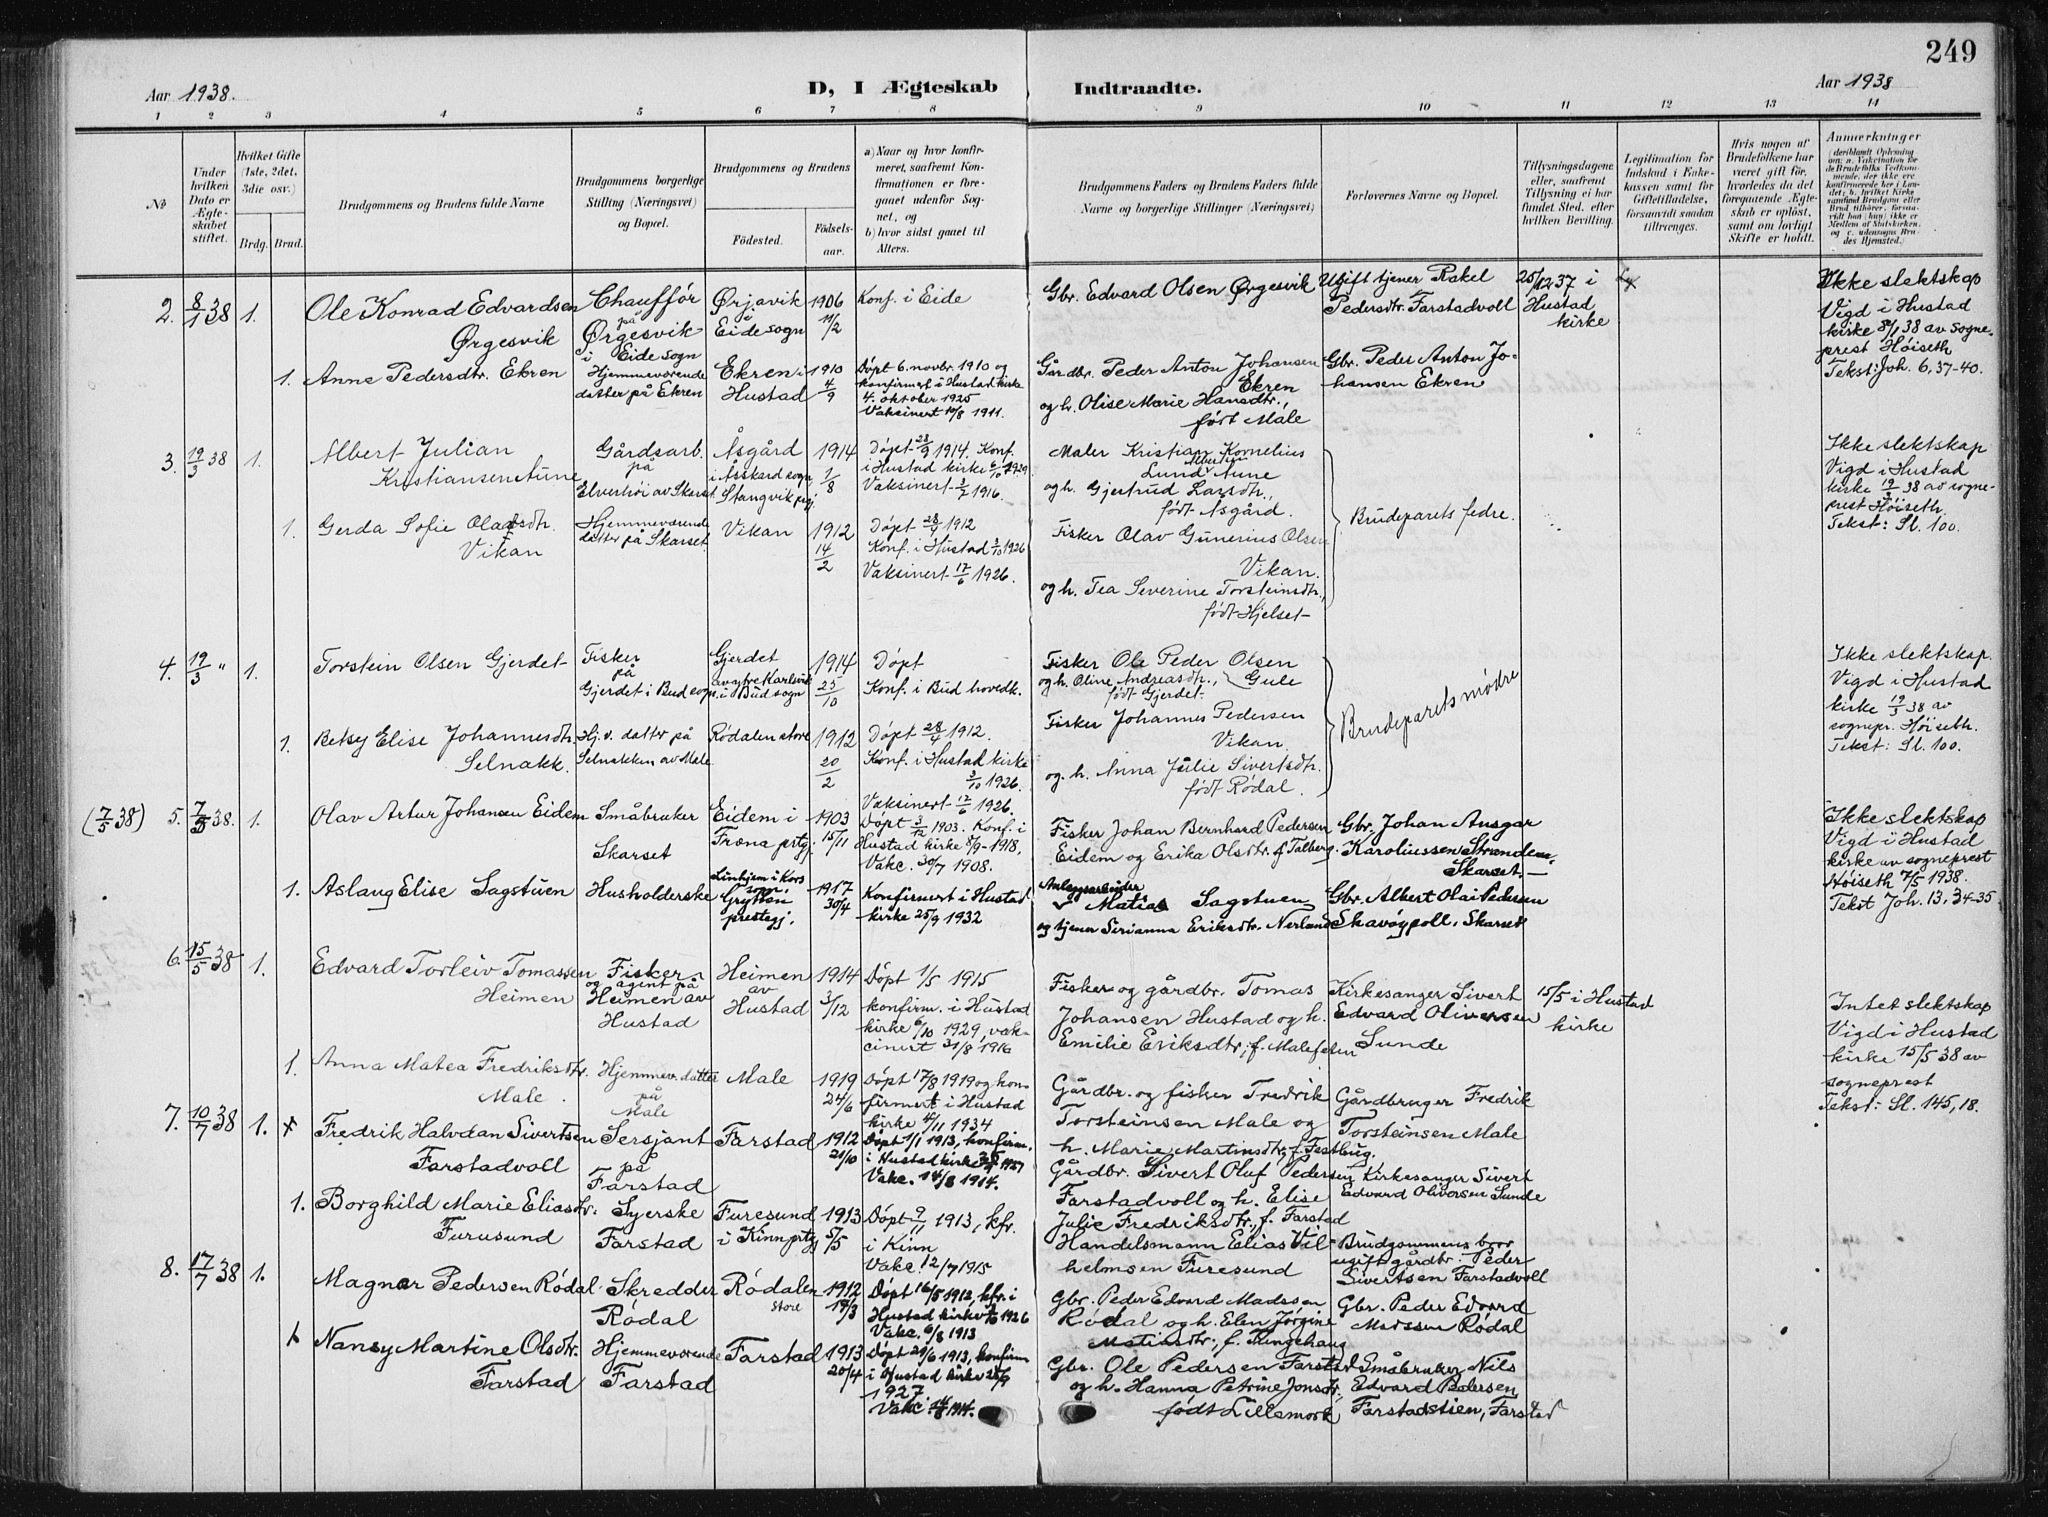 249
Aar 1938.
D, I Ægteskab
Indtraadte.
Aar 1938
1 2 3 4 5 6 7 8 9 10 11 12 13 14
No
Under hvilken Dato er Ægteskabet stiftet.
Hvilket Gifte (1ste, 2det, 3die osv.)
Brdg. Brud.
Brudgommens og Brudens fulde Navne
Brudgommens borgerlige Stilling (Næringsvei) og Bopæl.
Brudgommens og Brudens
Fødested.
Fødselsaar.
a) Naar og hvor konfirmeret, saafremt Konfirmationen er foregaaet udenfor Sognet, og
b) hvor sidst gaaet til Alters.
Brudgommens Faders og Brudens Faders fulde Navne og borgerlige Stillinger (Næringsvei)
Forlovernes Navne og Bopæl.
Tillysningsdagene eller, saafremt Tillysning ei har fundet Sted, efter hvilken Bevilling.
Legitimation for Indskud i Enkekassen samt for Giftetilladelse, forsaavidt saadan tiltrænges.
Hvis nogen af Brudefolkene har været gift før, hvorledes da det foregaaende Ægteskab er opløst, samt om lovligt Skifte er holdt.
Anmerkninger
2. 8/1 38 1. Ole Konrad Edvardsen Ørgesvik
Chauffør på Ørgesvik i Eide sogn
Ørjavik i Eide sogn
1906 11/2
Konf. i Eide
Gbr. Edvard Olsen Ørgesvik
Ugift tjener Rakel Pedersdtr. Farstadvoll
25/12 37 i Hustad kirke
Ikke slektskap
Vigd i Hustad
kirke 8/1 38 av sogneprest Høiseth
Tekst: Joh. 6, 37-40.
1. Anne Pedersdtr. Ekren
Hjemmeværende datter på Ekren
Ekren i Hustad
1910 4/9
Døpt 6. novbr. 1910 og konfirmert i Hustad kirke 4. oktober 1925
Vaksinert 10/8 1911.
Gårdbr. Peder Anton Johansen Ekren
og h. Olise Marie Hansdtr., født Male
Gbr. Peder Anton Johansen Ekren
3. 19/3 38 1. Albert Julian Kristiansen Aune
Gårdsarb. på Elverhøi av Skarset
Åsgård i Åsskard sogn Stangvik pgj.
1914 1/8
Døpt 28/9 1914. Konf. i Hustad kirke 6/10 1929
Vaksinert 3/7 1916.
Maler Kristian Kornelius Lund Aune
og h. Gjertrud Larsdtr., født Åsgård.
Brudeparets fedre.
Ikke slektskap
Vigd i Hustad
kirke 19/3 38 av sogneprest Høiseth.
Tekst: Sl. 100.
1. Gerda Sofie Olavsdtr. Vikan
Hjemmeværende datter på Skarset.
Vikan
1912 14/2
Døpt 28/4 1912
Konf. i Hustad 3/10 1926
Vaksinert 17/6 1926.
Fisker Olav Gunerius Olsen Vikan.
og h. Tea Severine Torsteinsdtr., født Hjelset
4. 19/3 " 1. Torstein Olsen Gjerdet
Fisker på Gjerdet i Bud sogn
Gjerdet av ytre Karlsvik i Bud sogn
1914 25/10
Døpt
Konf. i Bud hovedk.
Fisker Ole Peder Olsen Gule
og h. Oline Andreasdtr., født Gjerdet.
Brudeparets mødre
Ikke slektskap.
Vigd i Hustad
kirke 19/3 38 av
sognepr. Høiseth.
Tekst: Sl. 100.
1. Betsy Elise Johannesdtr. Selnakk.
Hj.v. datter på Selnakken av Male.
Rødalen store
1912 20/2
Døpt 28/4 1912.
Konf. i Hustad kirke 3/10 1926.
Vaksinert 17/6 1926.
Fisker Johannes Pedersen Vikan
og. h. Anna Julie Sivertsdtr. født Rødal.
(7/5 38) 5. 7/5 38. 1. Olav Artur Johansen Eidem
Småbruker Skarset
Eidem i Fræna prtgj.
1903 15/11
Døpt 3/12 1903. Konf. i Hustad kirke 8/9-1918,
Vakc. 30/7 1908.
Fisker Johan Bernhard Pedersen Eidem og Erika Olsdtr. f. Talberg
Gbr. Johan Ansgar Karoliussen Strandem, Skarset.
Ikke slektskap
Vigd i Hustad
kirke av sogneprest
Høiseth 7/5 1938.
Tekst Joh. 13, 34-35
1. Aslaug Elise Sagstuen
Husholderske
Linhjem i Kors sogn. Grytten prestegj.
1917 30/4
Konfirmert i Hustad kirke 25/9 1932
Anleggsarbeider Matias Sagstuen
og tjener Serianna Eriksdtr. Nerland
Gbr. Albert Olai Pedersen Skavøypoll, Skarset
6. 15/5 38 1. Edvard Torleiv Tomassen Heimen
Fisker og agent på Heimen av Hustad
Heimen av Hustad
1914 3/12
Døpt 1/5 1915
konfirm. i Hustad kirke 6/10 1929, vakcinert 31/8 1916
Fisker og gårdbr. Tomas Johansen Hustad og h. Emilie Eriksdtr., f. Malefeten
Kirkesanger Sivert Edvard Oliversen Sunde
15/5 i Hustad kirke
Intet slektskap
Vigd i Hustad
kirke 15/5 38 av
sogneprest
Tekst: Sl. 145, 18.
1. Anna Matea Fredriksdtr. Male.
Hjemmev. datter på Male
Male
1919 24/6
Døpt 17/8 1919 og konfirmert i Hustad kirke 4/11 1934
Gårdbr. og fisker Fredrik Torsteinsen Male og h. Marie Martinsdtr., f. Fastbug.
Gårdbruger Fredrik Torsteinsen Male
7. 10/7 38 1. Fredrik Halvdan Sivertsen Farstadvoll
Sersjant på Farstad
Farstad
1912 21/10
Døpt 1/1 1913, konfirm. i Hustad kirke 1927
Vakc. 14/8 1914.
Gårdbr. Sivert Oluf Pedersen Farstadvoll og h. Elise Julie Fredriksdtr., f. Farstad
Kirkesanger Sivert Edvard Oliversen Sunde
1. Borghild Marie Eliasdtr. Furusund
Syerske Farstad
Furesund i Kinn prtgj
1913 5/5
Døpt 9/11 1913, kfr. i Kinn
Vakc. 12/7 1915
Handelsmann Elias Vilhelmsen Furesund
Brudgommens bror ugift gårdbr. Peder Sivertsen Farstadvoll
8. 17/7 38 1. Magnar Pedersen Rødal
Skredder Rødal
Rødalen store
1912 19/3
Døpt 16/5 1912, kfr. i Hustad kirke 1926
Vakc. 6/8 1913
Gbr. Peder Edvard Madssen Rødal og h. Elen Jørgine Matiasdtr., f. Tungehaug
Gbr. Peder Edvard Madssen Rødal
1 Nansy Martine Olsdtr. Farstad
Hjemmeværende Farstad
Farstad
1913 20/4
Døpt 29/6 1913, konfirm i Hustad kirke 25/9 1927.
Vakc. 14/8 1914.
Gbr. Ole Pedersen Farstad og h. Hanna Petrine Jonsdtr, født Lillemork
Småbruker Nils Edvard Pedersen Farstadstien, Farstad